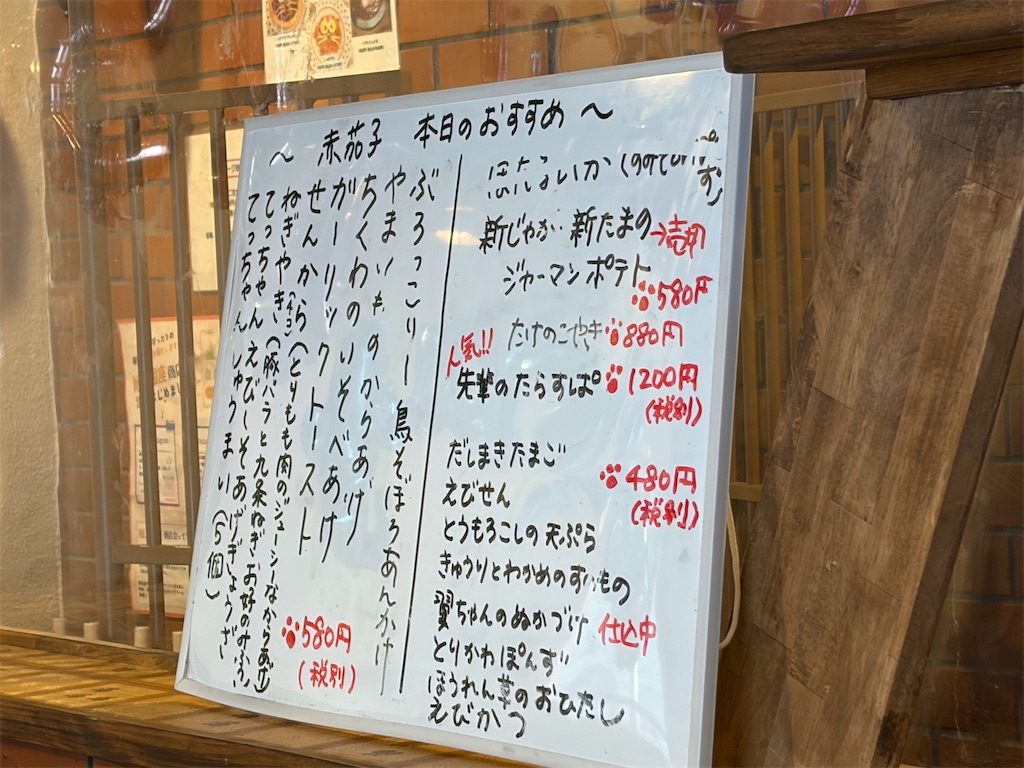 ～ 赤茄子 本日のおすすめ ～
ほたるいか
新じゃが・新たまの →売切
ジャーマンポテト
580円
人気!! たけのこやき 880円
先輩のたらすぱ 1200円
(税別)
だしまきたまご
480円
えびせん
(税別)
とうもろこしの天ぷら
きゅうりとわかめのすのもの
翼ちゃんのぬかづけ 仕込中
とりかわぽんず
ほうれん草のおひたし
えびかつ
ぶろっこりー鳥そぼろあんかけ
やまいものからあげ
ちくわのいそべあげ
がーりっくトースト
せんから(とりもも肉のジューシーなからあげ)
ねぎやき(豚バラと九条ねぎ、お好みのみふう)
てっちゃんえびしそあげぎょうざ
てっちゃんしゅうまい(5個)
580円
(税別)